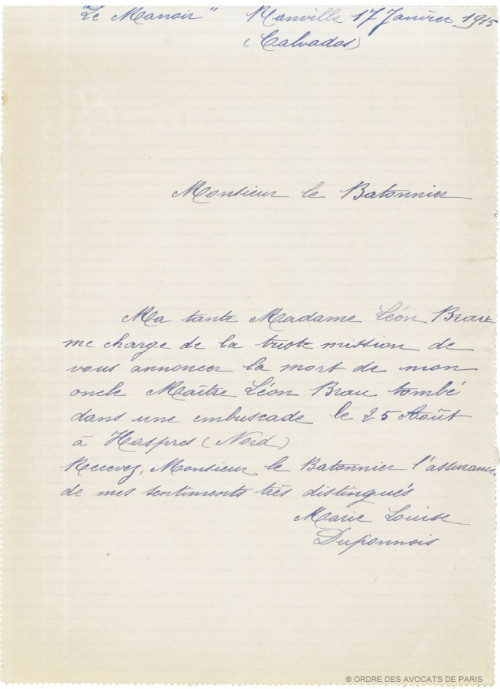 "Le Manoir" Manville 17 Janvier 1915
(Calvados)
Monsieur le Batonnier
Ma tante Madame Léon Brau
me charge de la triste mission de
vous annoncer la mort de mon
oncle Maître Léon Brau tombé
dans une embuscade le 25 Août
à Haspres (Nord)
Recevez, Monsieur le Batonnier l'assurance
de mes sentiments très distingués
Marie Louise
Duponnois
© ORDRE DES AVOCATS DE PARIS